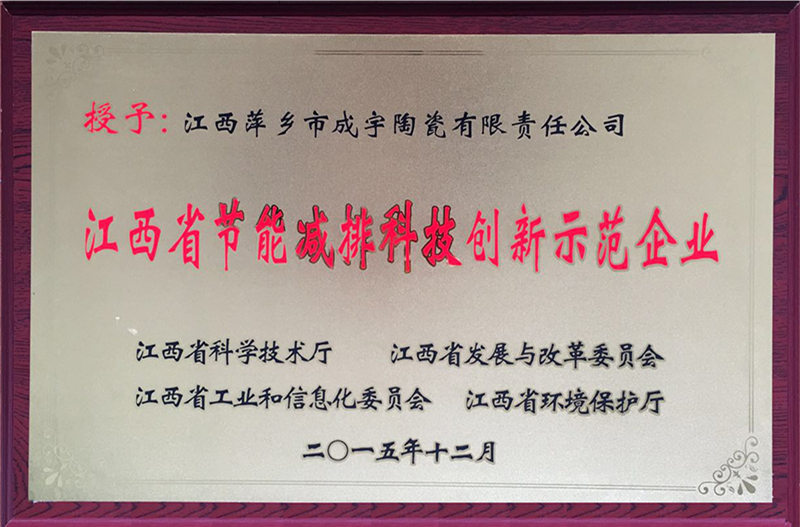 授予：江西萍乡市成宇陶瓷有限责任公司
江西省节能减排科技创新示范企业
江西省科学技术厅 江西省发展与改革委员会
江西省工业和信息化委员会 江西省环境保护厅
二〇一五年十二月